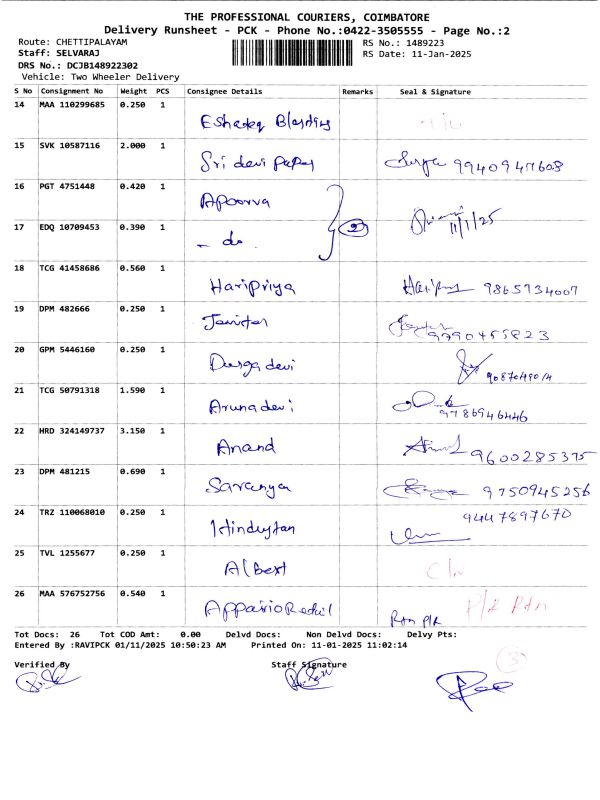 THE PROFESSIONAL COURIERS, COIMBATORE
Delivery Runsheet - PCK - Phone No.:0422-3505555 - Page No.:2
Route: CHETTIPALAYAM
RS No.: 1489223
Staff: SELVARAJ
RS Date: 11-Jan-2025
DRS No.: DCJB148922302
Vehicle: Two Wheeler Delivery
S No Consignment No Weight PCS Consignee Details Remarks Seal & Signature
14 MAA 110299685 0.250 1
15 SVK 10587116 2.000 1
Sri devi paper Surya 9940947608
16 PGT 4751448 0.420 1
Apoorva
2
11/1/25
17 EDQ 10709453 0.390 1
- do.
18 TCG 41458686 0.560 1
Haripriya 9865734007
19 DPM 482666 0.250 1
9790455823
20 GPM 5446160 0.250 1
Durga devi
21 TCG 50791318 1.590 1
Aruna devi 9786946446
22 HRD 324149737 3.150 1
Anand 9600285375
23 DPM 481215 0.690 1
Saranya 9750945256
24 TRZ 110068010 0.250 1
9447897670
Hindustan
25 TVL 1255677 0.250 1
Albert
26 MAA 576752756 0.540 1
P/R Rtn
Rtn P/R
Tot Docs: 26 Tot COD Amt: 0.00 Delvd Docs: Non Delvd Docs: Delvy Pts:
Entered By :RAVIPCK 01/11/2025 10:50:23 AM Printed On: 11-01-2025 11:02:14
3
Verified By Staff Signature